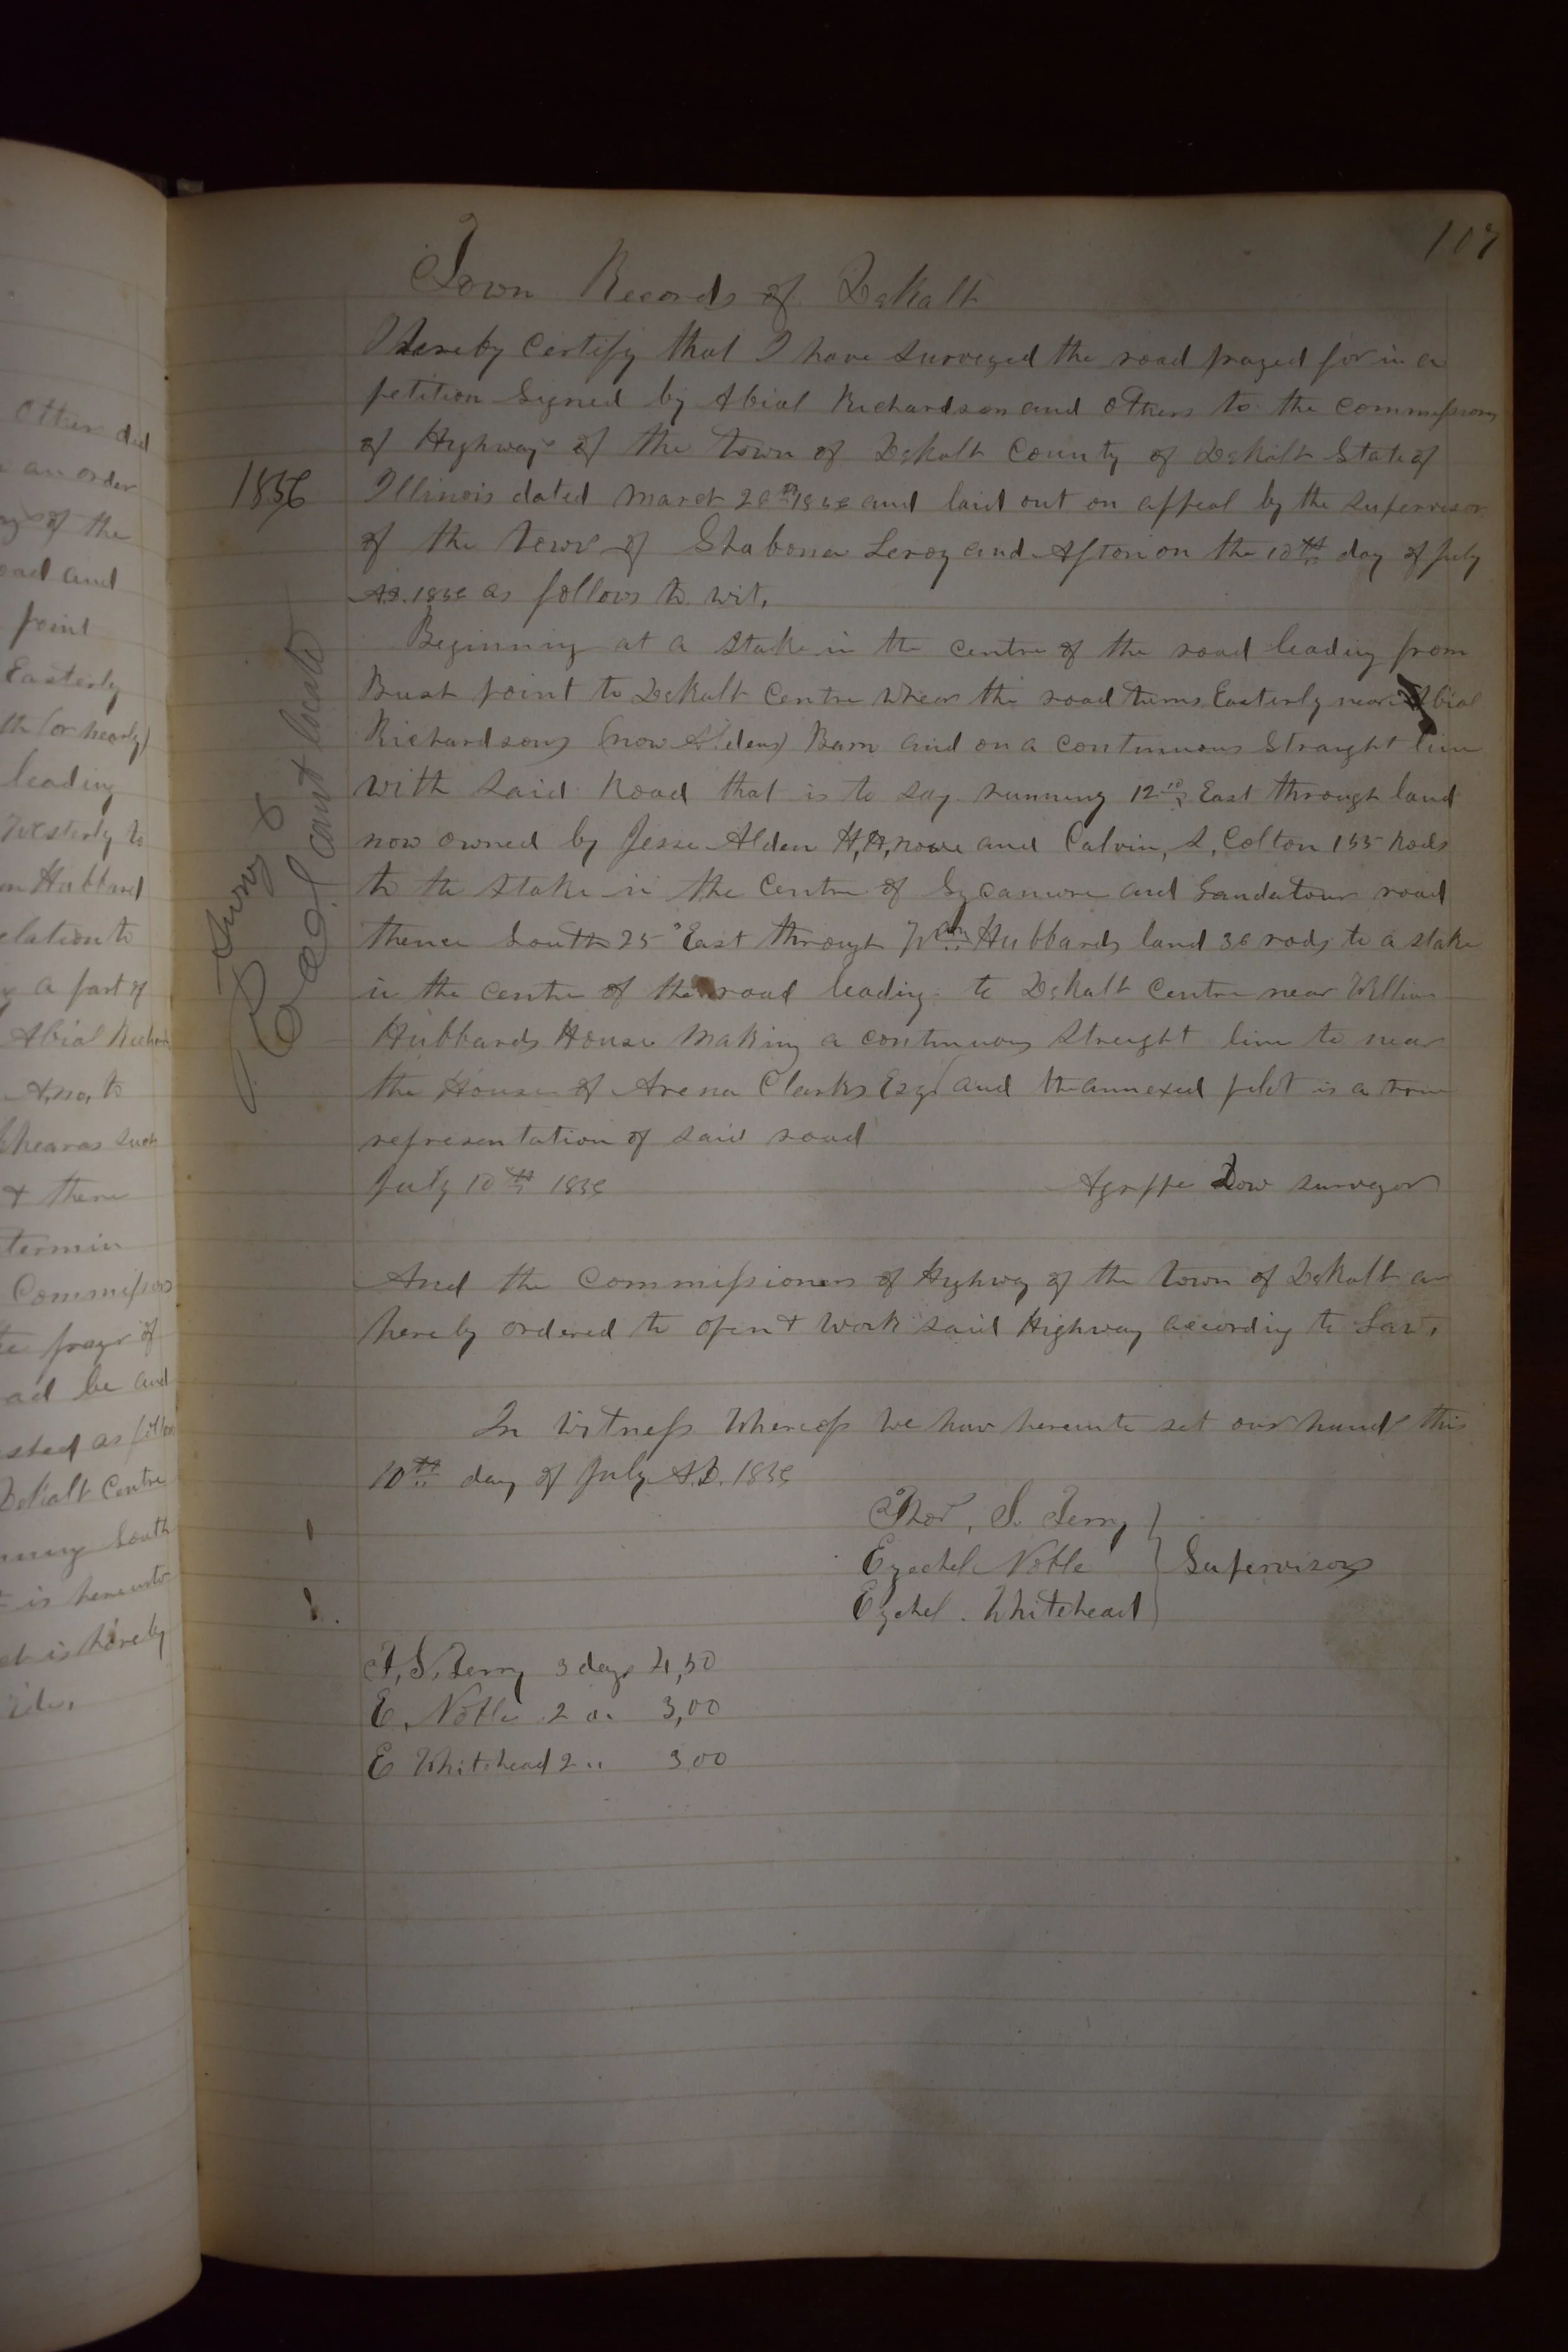 107
Town Records of DeKalb
I hereby Certify that I have Surveyed the road prayed for in a
petition Signed by Abial Richardson and Others to the Commissioners
of Highways of the Town of DeKalb County of DeKalb State of
1856
Illinois dated March 1856 and laid out on appeal by the Supervisor
of the Town of Shabona Leroy and Afton on the 10th day of July
A.D. 1856 as follows to wit,
Beginning at a Stake in the centre of the road leading from
point to DeKalb Centre Where the road turns Easterly near Abial
Richardsons (now Aldens) Barn and on a continuous Straight line
With Said Road that is to Say running 12 East through land
now owned by Jesse Alden H. H. Rowe and Calvin, S, Colton 155 Rods
to the Stake in the Centre of Sycamore and road
thence South 25° East through Wm Hubbards land 36 rods to a stake
in the centre of the road leading to DeKalb Centre near William
Hubbards House Making a continuous Streight line to near
the House of Clarks Esq and the annexed plot is a true
representation of said road
July 10th 1856
Dow surveyor
Survey &
Road cant locate
And the Commissioners of Highway of the Town of DeKalb are
hereby ordered to open & Work said Highway according to Law,
In Witness Whereof We have hereunto set our hands this
10th day of July A.D. 1856
Thos, S. Terry
Ezechel Noble
Supervisors
Ezchel. Whitehead
T, S, Terry 3 days 4,50
E. Noble 2 3,00
E Whitehead 2 " 3,00
Other did
an order
of the
oad and
point
Easterly
th (or nearly)
leading
Westerly to
Hubbard
elation to
a part of
Abial
to
such
& there
termin
Commissioners
prayr of
ad be and
sted as
DeKalb Centre
South
is hereunto
is hereby